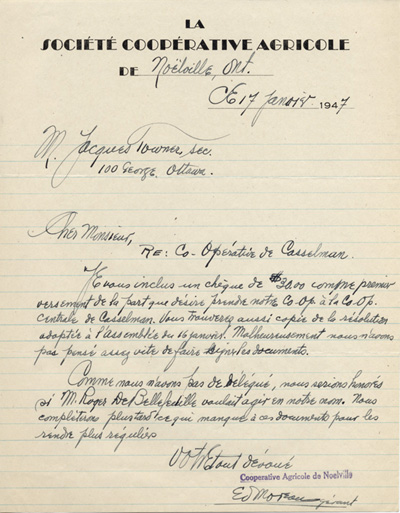 LA
SOCIÉTÉ COOPÉRATIVE AGRICOLE
DE Noëlville, Ont.
CE 17 Janvier 1947
M. Jacques Towner, sec.
100 George, Ottawa.
Cher Monsieur,
RE: Co-Opérative de Casselman.
Je vous inclus un chèque de $30.00 comme premier
versement de la part que désire prendre notre Co-Op. à la Co-Op.
centrale de Casselman. Vous trouverez aussi copie de la résolution
adoptée à l'assemblée du 16 janvier. Malheureusement nous n'avons
pas pensé assez vite de faire signer les documents.
Comme nous n'avons pas de délégué, nous serions honorés
si M. Roger De Bellefeuille voulait agir en notre nom. Nous
complèterons plus tard ce qui manque à ces documents pour les
rendre plus réguliers
Votre tout dévoué
Cooperative Agricole de Noelville
Ed Moreau gérant